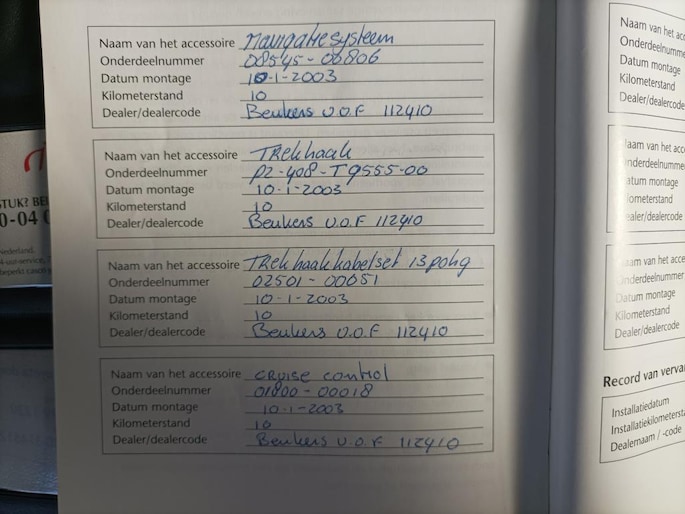 Naam van het accessoire Navigatiesysteem
Onderdeelnummer 08545-00806
Datum montage 10-1-2003
Kilometerstand 10
Dealer/dealercode Beukers V.O.F 112410
Naam van het accessoire TRekhaak
Onderdeelnummer PZ-408-T9555-00
Datum montage 10-1-2003
Kilometerstand 10
Dealer/dealercode Beukers V.O.F 112410
Naam van het accessoire TRekhaak kabelset 13polig
Onderdeelnummer 02501-00051
Datum montage 10-1-2003
Kilometerstand 10
Dealer/dealercode Beukers V.O.F 112410
Naam van het accessoire CRuise control
Onderdeelnummer 01800-00018
Datum montage 10-1-2003
Kilometerstand 10
Dealer/dealercode Beukers V.O.F 112410
STUK? BE
0-04
Nederland.
Naam van het acc
Onderdeelnumme
Datum montage
Kilometerstand
Dealer/dealercode
aam van het acc
nderdeelnummer
atum montage
ometerstand
ealer/dealercode
am van het acce
nderdeelnummer
Datum montage
Kilometerstand
Dealer/dealercode
Record van verva
Installatiedatum
Installatiekilometersta
Dealernaam / -code